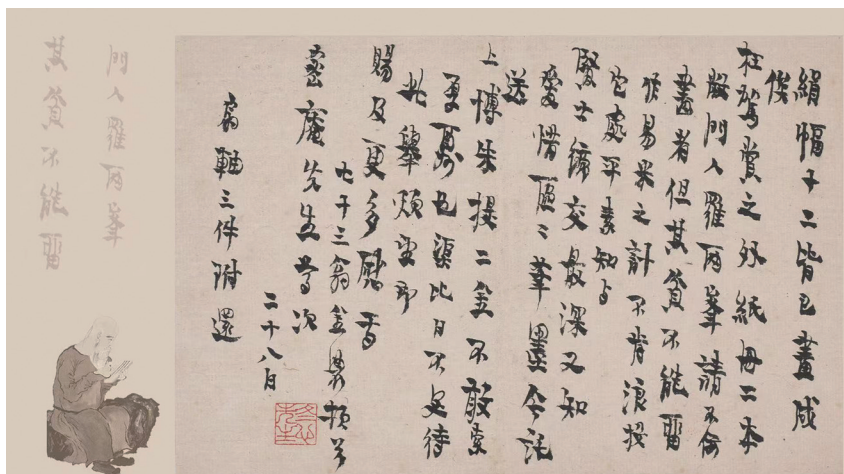 絹幅十二皆已畫成
俟
枉駕賞之外紙冊二本
敝門人羅兩峯請不佞
畫者但其貧不能留
作易米之計不肯浪投
它處平素知与
賢士締交最深又知
愛惜區〻筆墨今託
送
上博朱提二金不敢索
更也渠比日不足待
此舉煩望即
賜及更多慰耳
七十三翁金農頓首
密庵先生尊次
二十八日
冬心先生
扇軸三件附還
門人羅兩峯
其貧不能留